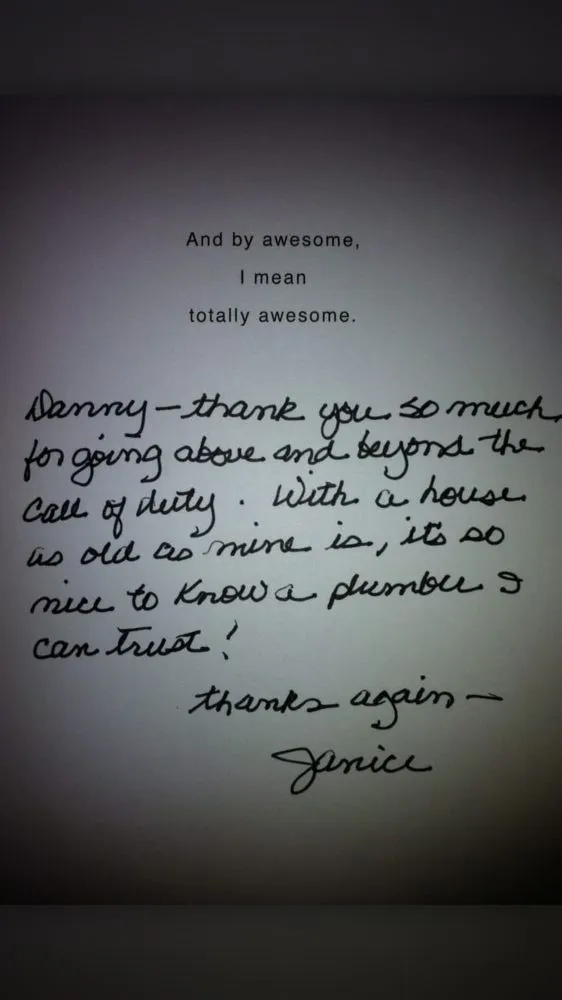 And by awesome,
I mean
totally awesome.
Danny - thank you so much
for going above and beyond the
call of duty. With a house
as old as mine is, it's so
nice to know a plumber I
can trust!
thanks again -
Janice